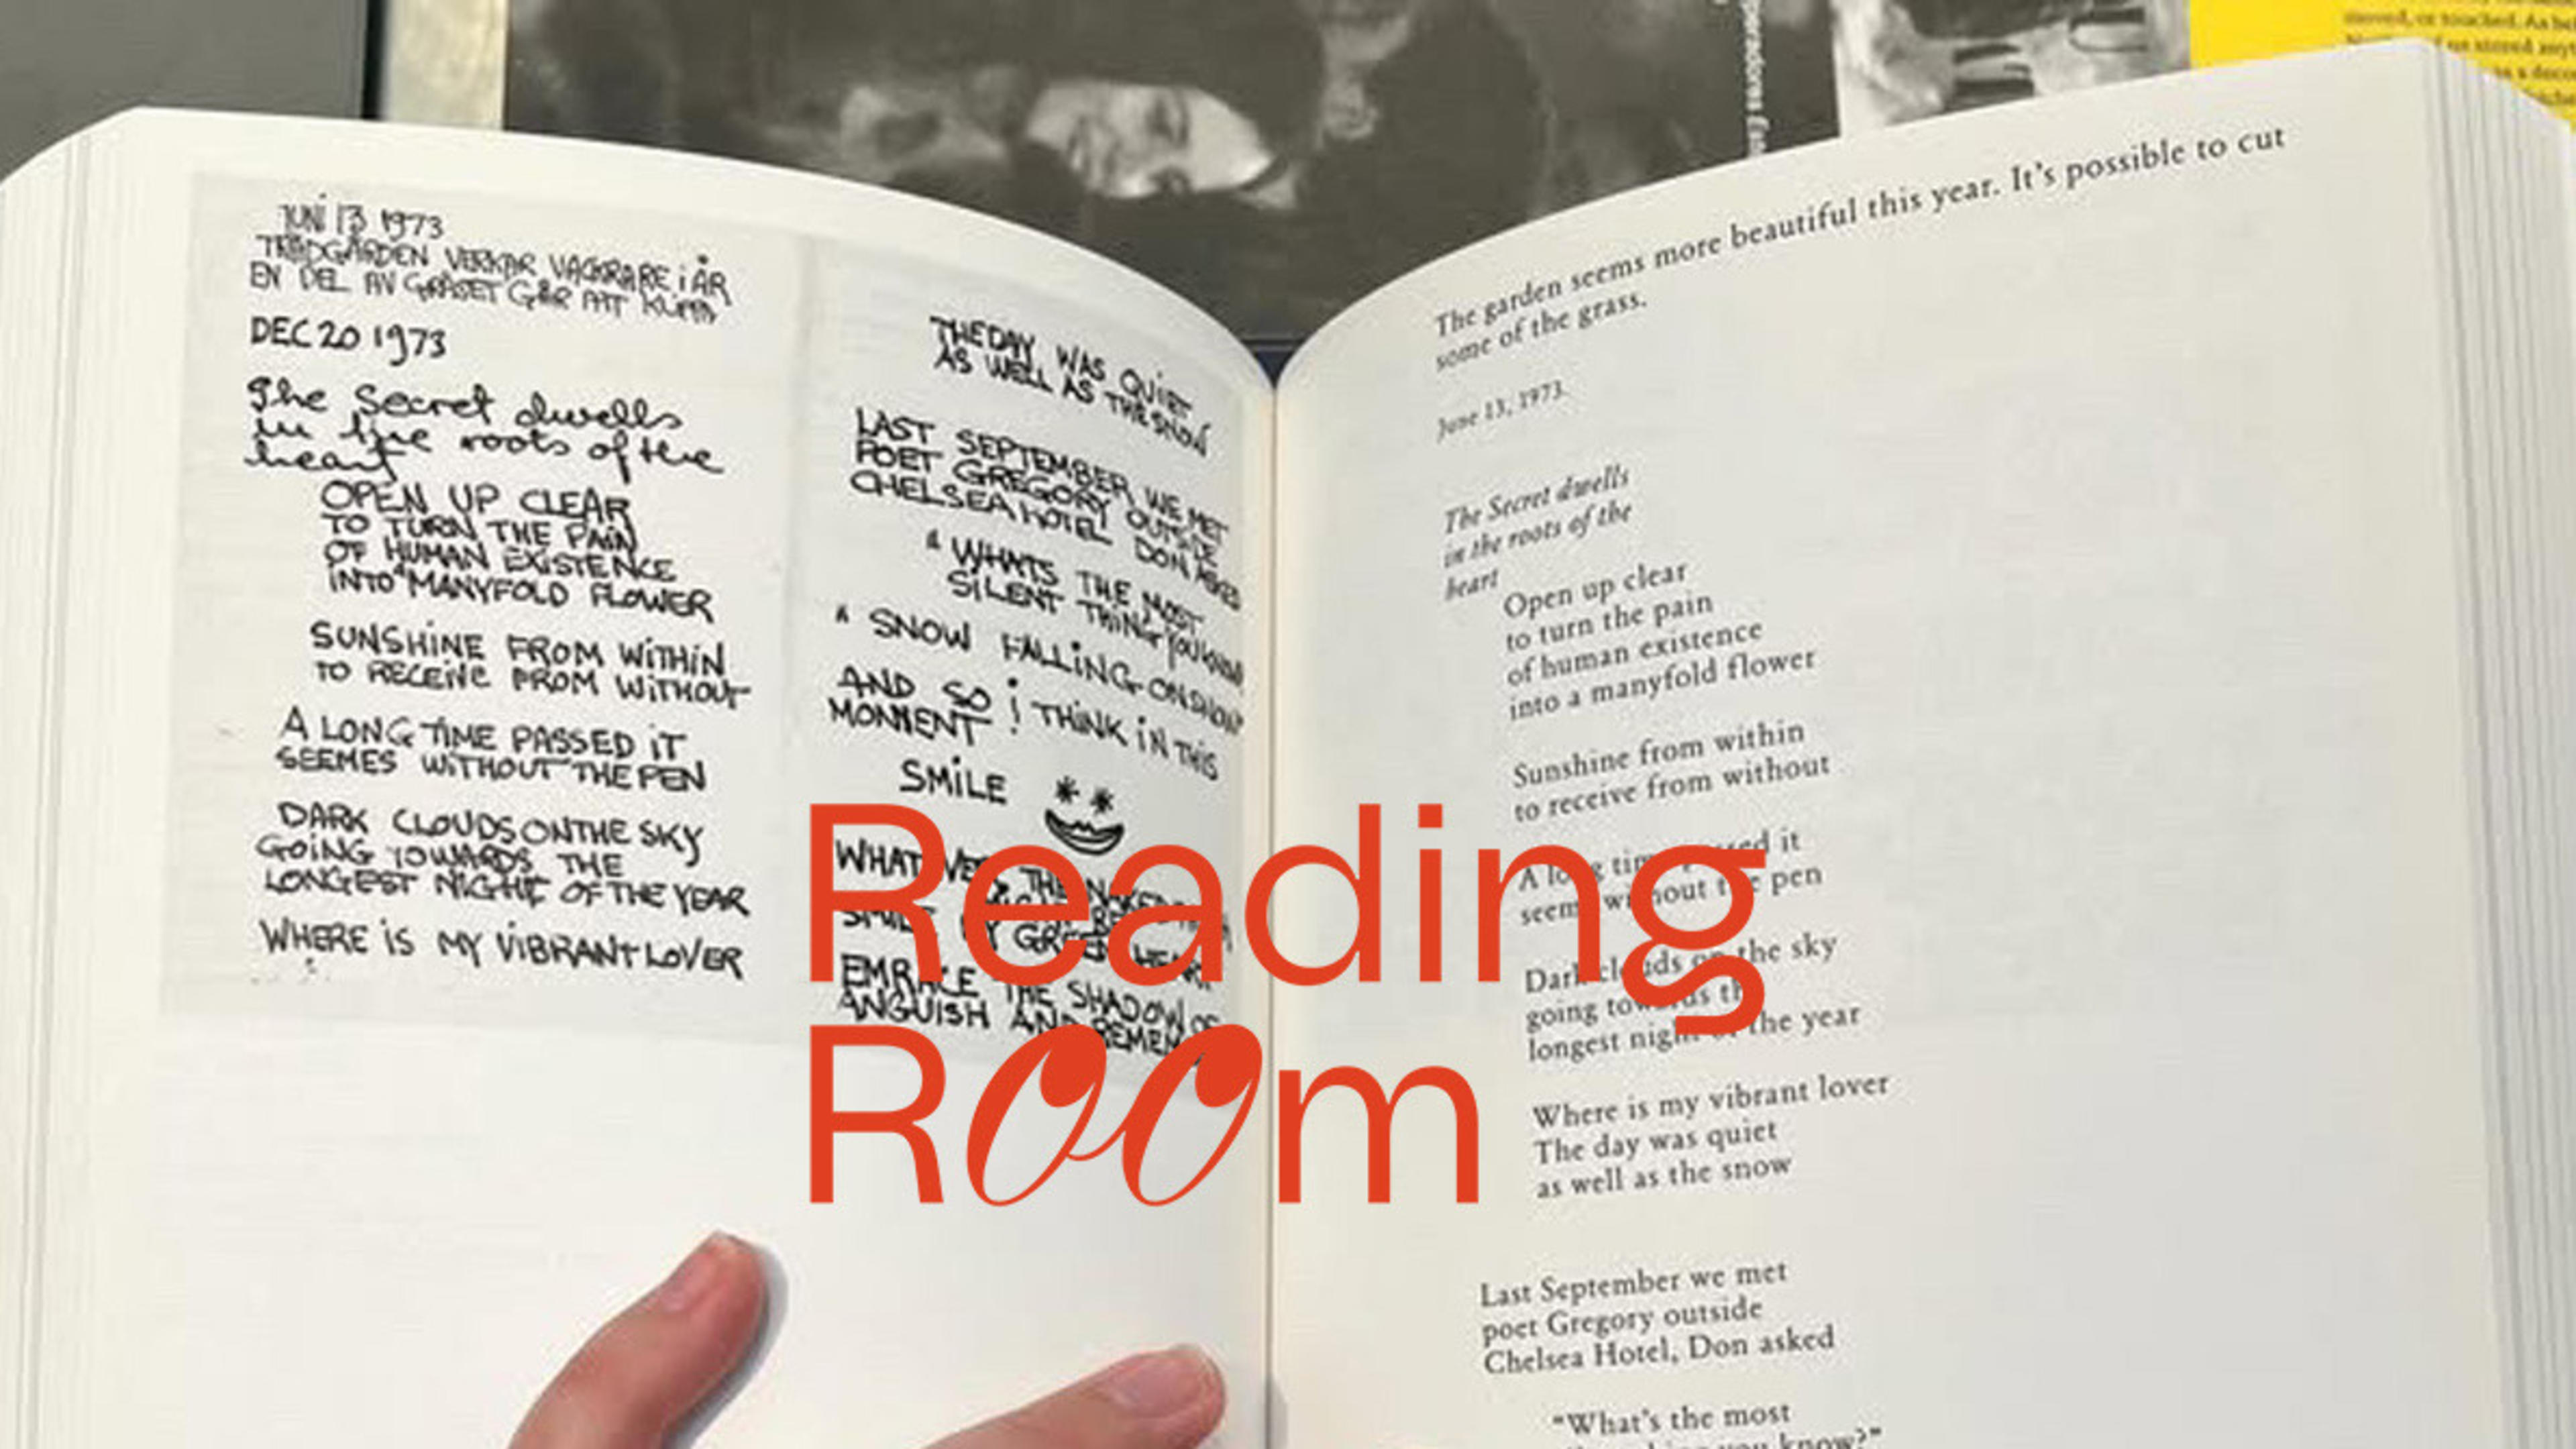 JUNI 13 1973
TRÄDGÅRDEN VERKAR VACKRARE i ÅR
EN DEL AV GRÄSET GÅR ATT KLIPPA
DEC 20 1973
The Secret dwells
in the roots of the
heart
OPEN UP CLEAR
TO TURN THE PAIN
OF HUMAN EXISTENCE
INTO A MANYFOLD FLOWER
SUNSHINE FROM WITHIN
TO RECEIVE FROM WITHOUT
A LONG TIME PASSED IT
SEEMES WITHOUT THE PEN
DARK CLOUDS ON THE SKY
GOING TOWARDS THE
LONGEST NIGHT OF THE YEAR
WHERE IS MY VIBRANT LOVER
THE DAY WAS QUIET
AS WELL AS THE SNOW
LAST SEPTEMBER WE MET
POET GREGORY OUTSIDE
CHELSEA HOTEL DON ASKED
"WHATS THE MOST
SILENT THING YOU KNOW
"SNOW FALLING ON SNOW"
AND SO I THINK IN THIS
MOMENT
SMILE
THE
SMILE MY GREEN HEART
EMBRACE THE SHADOW OF
ANGUISH AND
The garden seems more beautiful this year. It's possible to cut
some of the grass.
June 13, 1973.
The Secret dwells
in the roots of the
heart
Open up clear
to turn the pain
of human existence
into a manyfold flower
Sunshine from within
to receive from without
A long time passed it
seems without the pen
Dark clouds on the sky
going towards the
longest night of the year
Where is my vibrant lover
The day was quiet
as well as the snow
Last September we met
poet Gregory outside
Chelsea Hotel, Don asked
"What's the most
you know?"
Reading
Room